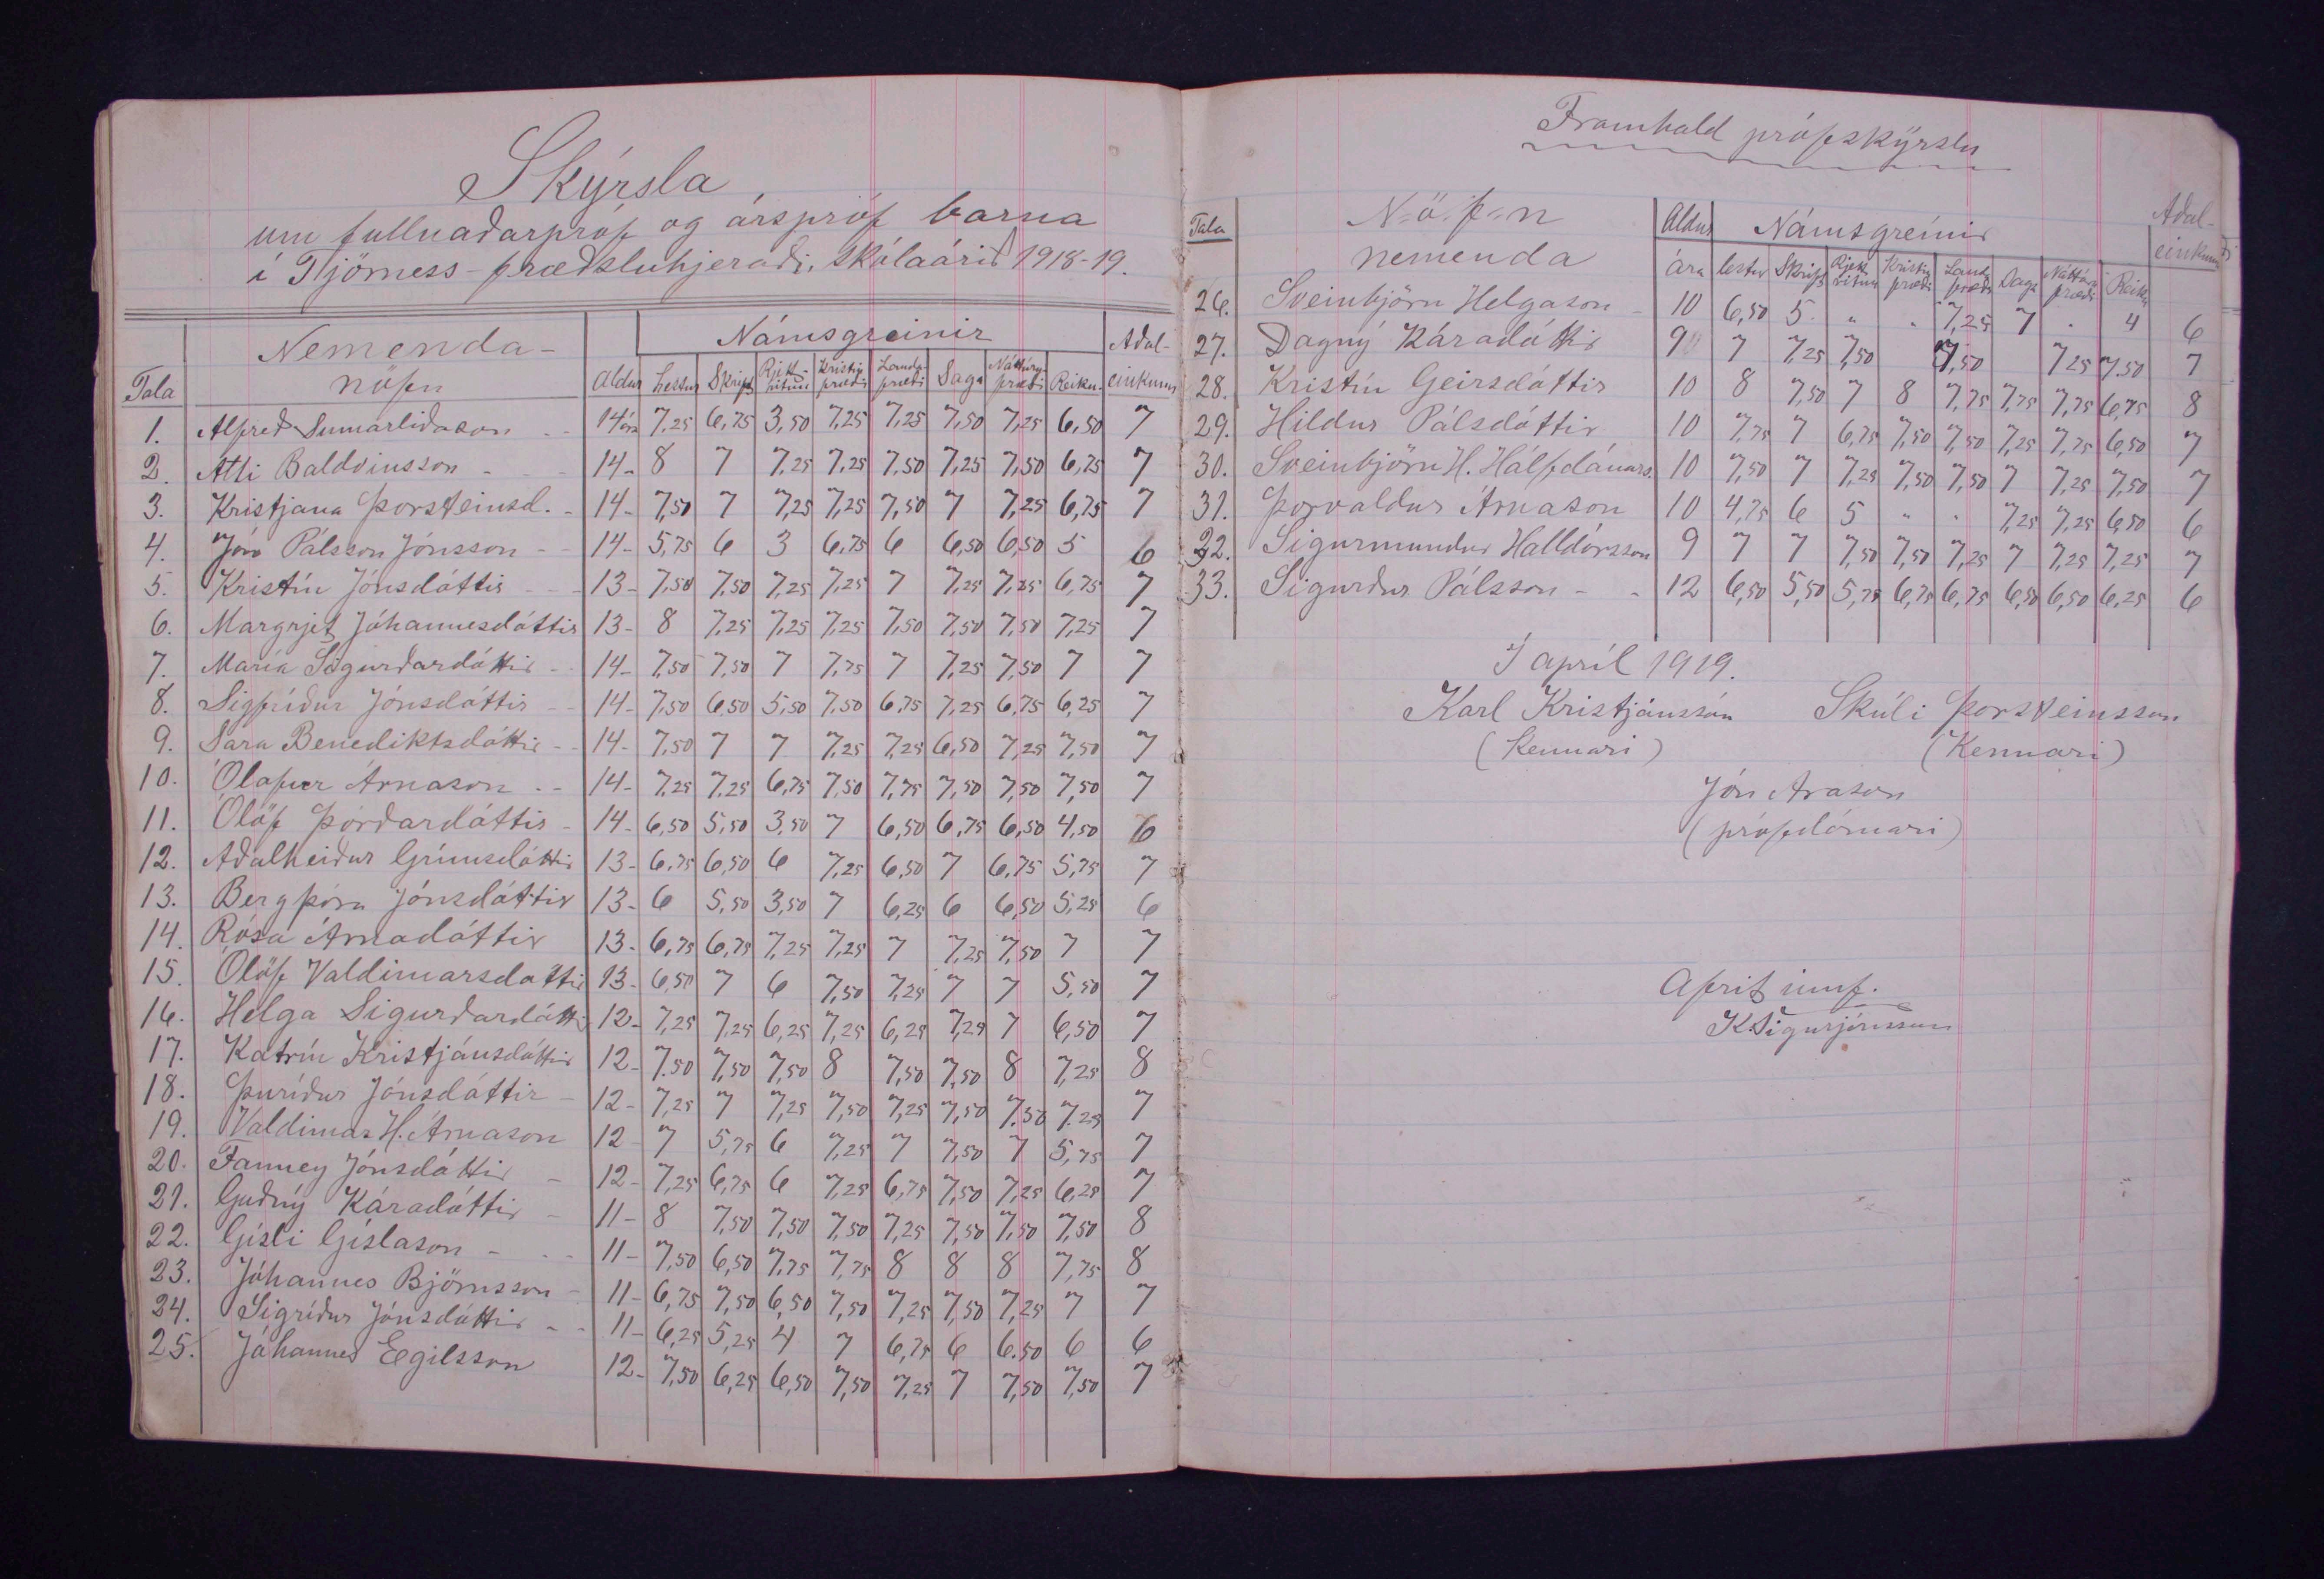 Skýrsla
um fullnaðarpróf og árspróf barna
í Tjörness-fræðsluhjeraði, skólaárið 1918-19.
Tala Nemenda-nöfn Aldur Námsgreinir Aðal-einkunn
Lestur Skrift Rjettritun Kristinfræði Landafræði Saga Náttúrufræði Reikn.
1. Alfreð Sumarliðason - - 14 ára 7,25 6,75 3,50 7,25 7,25 7,50 7,25 6,50 7
2. Atli Baldvinsson - - - 14- 8 7 7,25 7,25 7,50 7,25 7,50 6,75 7
3. Kristjana Þorsteinsd. - 14- 7,50 7 7,25 7,25 7,50 7 7,25 6,75 7
4. Jón Pálsson Jónsson - - 14- 5,75 6 3 6,75 6 6,50 6,50 5 6
5. Kristín Jónsdóttir - - - 13- 7,50 7,50 7,25 7,25 7 7,25 7,25 6,75 7
6. Margrjet Jóhannesdóttir 13- 8 7,25 7,25 7,25 7,50 7,50 7,50 7,25 7
7. María Sigurðardóttir - - 14- 7,50 7,50 7 7,75 7 7,25 7,50 7 7
8. Sigfríður Jónsdóttir - - 14- 7,50 6,50 5,50 7,50 6,75 7,25 6,75 6,25 7
9. Sara Benediktsdóttir - - 14- 7,50 7 7 7,25 7,25 6,50 7,25 7,50 7
10. Ólafur Árnason - - 14- 7,25 7,25 6,75 7,50 7,75 7,50 7,50 7,50 7
11. Ólöf Þórðardóttir - 14- 6,50 5,50 3,50 7 6,50 6,75 6,50 4,50 6
12. Aðalheiður Grímsdóttir 13- 6,75 6,50 6 7,25 6,50 7 6,75 5,75 7
13. Bergþóra Jónsdóttir 13- 6 5,50 3,50 7 6,25 6 6,50 5,25 6
14. Rósa Árnadóttir 13- 6,75 6,75 7,25 7,25 7 7,25 7,50 7 7
15. Ólöf Valdimarsdóttir 13- 6,50 7 6 7,50 7,25 7 7 5,50 7
16. Helga Sigurðardóttir 12- 7,25 7,25 6,25 7,25 6,25 7,25 7 6,50 7
17. Katrín Kristjánsdóttir 12- 7,50 7,50 7,50 8 7,50 7,50 8 7,25 8
18. Þuríður Jónsdóttir - 12- 7,25 7 7,25 7,50 7,25 7,50 7,50 7,25 7
19. Valdimar H. Árnason 12- 7 5,75 6 7,25 7 7,50 7 5,75 7
20. Fanney Jónsdóttir - 12- 7,25 6,75 6 7,25 6,75 7,50 7,25 6,25 7
21. Guðný Káradóttir - 11- 8 7,50 7,50 7,50 7,25 7,50 7,50 7,50 8
22. Gísli Gíslason - - - 11- 7,50 6,50 7,75 7,75 8 8 8 7,75 8
23. Jóhannes Björnsson - 11- 6,75 7,50 6,50 7,50 7,25 7,50 7,25 7 7
24. Sigríður Jónsdóttir - - 11- 6,25 5,25 4 7 6,75 6 6.50 6 6
25. Jóhannes Egilsson 12- 7,50 6,25 6,50 7,50 7,25 7 7,50 7,50 7
Framhald prófskýrslu
Tala Nöfn Aldur Námsgreinir Aðal-
nemenda ára lestur Skrift Rjettritun Kristinfræði Landafræði Saga Náttúrufræði Reikn. einkunn
26. Sveinbjörn Helgason - 10 6,50 5 " " 7,25 7 " 4 6
27. Dagný Káradóttir 9 7 7,25 7,50 7,50 7,25 7.50 7
28. Kristín Geirsdóttir 10 8 7,50 7 8 7,75 7,75 7,75 6,75 8
29. Hildur Pálsdóttir 10 7,75 7 6,75 7,50 7,50 7,25 7,75 6,50 7
30. Sveinbjörn H. Hálfdánars. 10 7,50 7 7,25 7,50 7,50 7 7,25 7,50 7
31. Þorvaldur Árnason 10 4,75 6 5 " " 7,25 7,25 6,50 6
32. Sigurmundur Halldórsson 9 7 7 7,50 7,50 7,25 7 7,25 7,25 7
33. Sigurður Pálsson - - 12 6,50 5,50 5,75 6,75 6,75 6,50 6,50 6,25 6
Í apríl 1919.
Karl Kristjánsson Skúli Þorsteinsson
(Kennari) (Kennari)
Jón Arason
(prófdómari)
Afrit innf.
K. Sigurjónsson